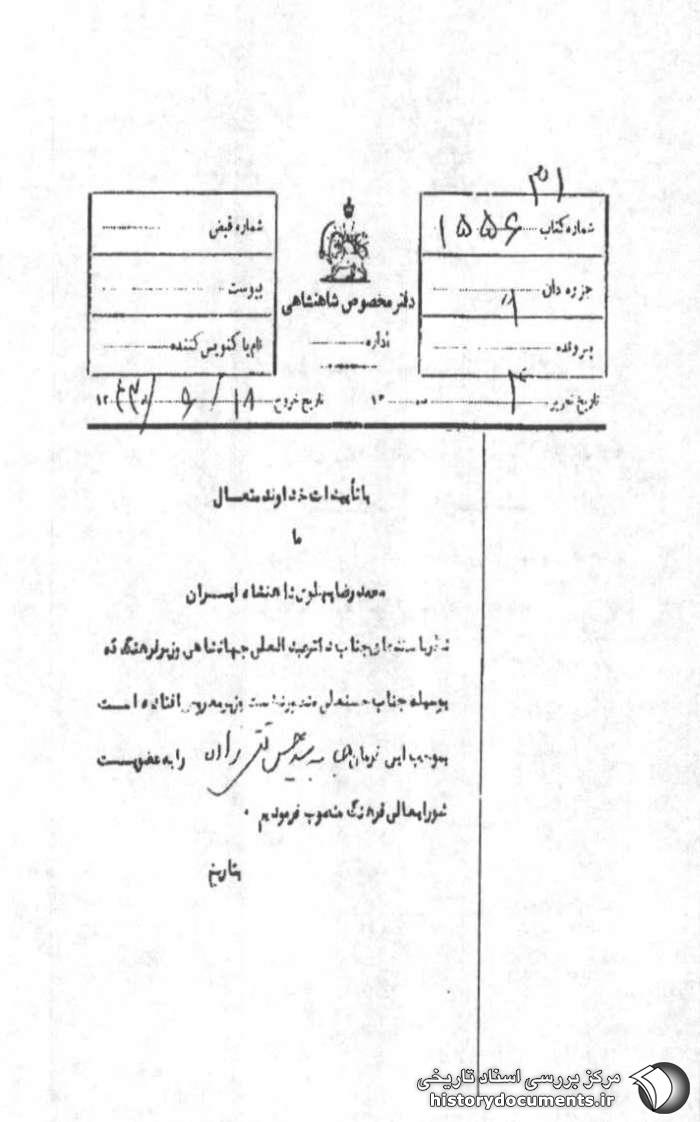 ۳۱
شماره کتاب ۱۵۵۶
جزوه دان
پرونده
تاریخ تحریر ماه ۱۳
دفتر مخصوص شاهنشاهی
اداره
شماره قبض
پیوست
نام پاکنویس کننده
تاریخ خروج ۱۸/ ۶ /
با تأییدات خداوند متعال
ما
محمد رضا پهلوی شاهنشاه ایران
نظر باستدعای جناب دکتر عبدالعلی جهانشاهی وزیر فرهنگ که
بوسیله جناب حسنعلی منصور نخست وزیر معروض افتاده است
بموجب این فرمان سید حسن تقی زاده را به عضویت
شورایعالی فرهنگ منصوب فرمودیم ۰
بتاریخ
مرکز بررسی اسناد تاریخی
historydocuments.ir